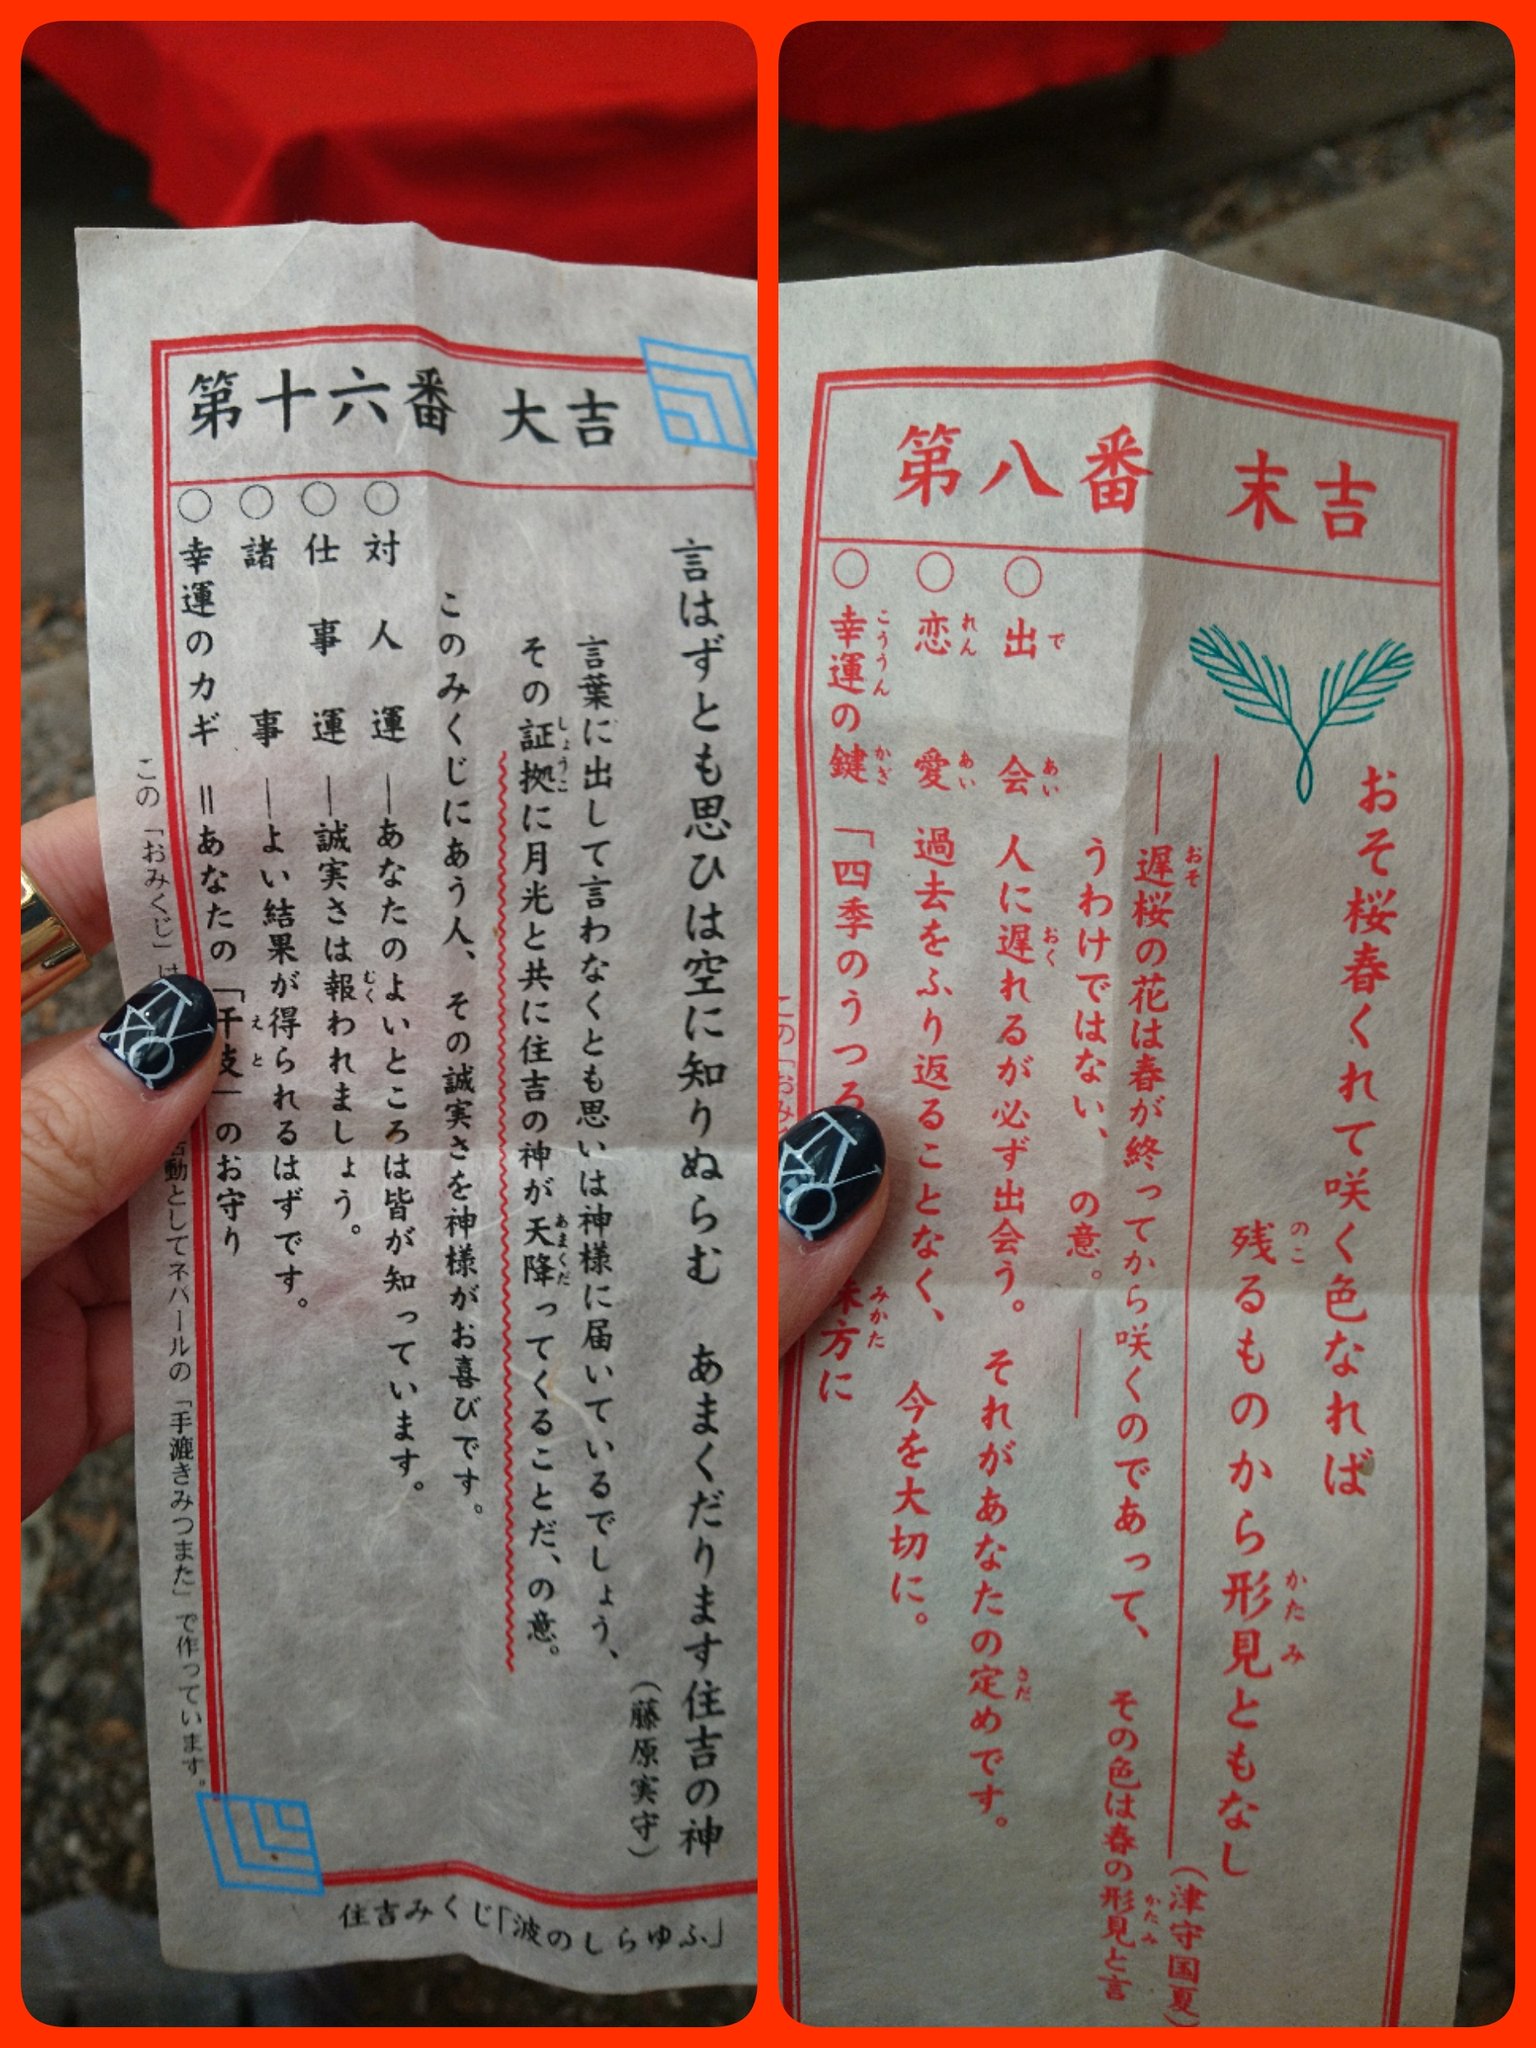 第十六番 大吉
言はずとも思ひは空に知りぬらむ あまくだります住吉の神
(藤原実守)
言葉に出して言わなくとも思いは神様に届いているでしょう、
その証拠に月光と共に住吉の神が天降ってくることだ、の意。
このみくじにあう人、その誠実さを神様がお喜びです。
○対人運―あなたのよいところは皆が知っています。
○仕事運―誠実さは報われましょう。
○諸事―よい結果が得られるはずです。
○幸運のカギ=あなたの「干支」のお守り
この「おみくじ」は 活動としてネパールの「手漉きみつまた」で作っています。
住吉みくじ「波のしらゆふ」
第八番 末吉
おそ桜春くれて咲く色なれば
残るものから形見ともなし
(津守国夏)
―遅桜の花は春が終ってから咲くのであって、その色は春の形見と言
うわけではない、の意。―
○出会 人に遅れるが必ず出会う。それがあなたの定めです。
○恋愛 過去をふり返ることなく、今を大切に。
○幸運の鍵 「四季のうつろ 味方に
この「おみ